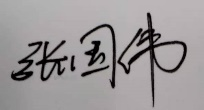 张国伟